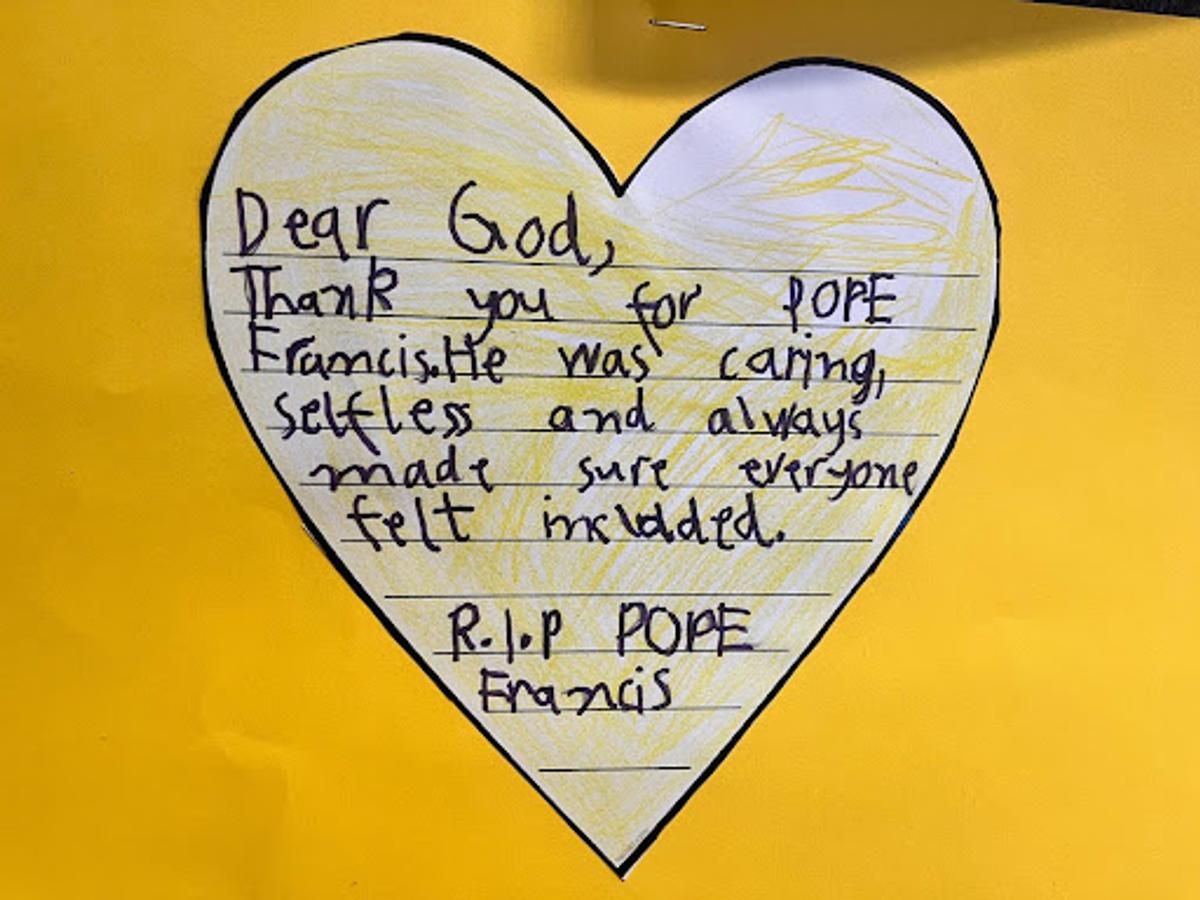 Dear God,
Thank you for POPE
Francis.He was caring,
selfless and always
made sure everyone
felt included.
R.I.P POPE
Francis